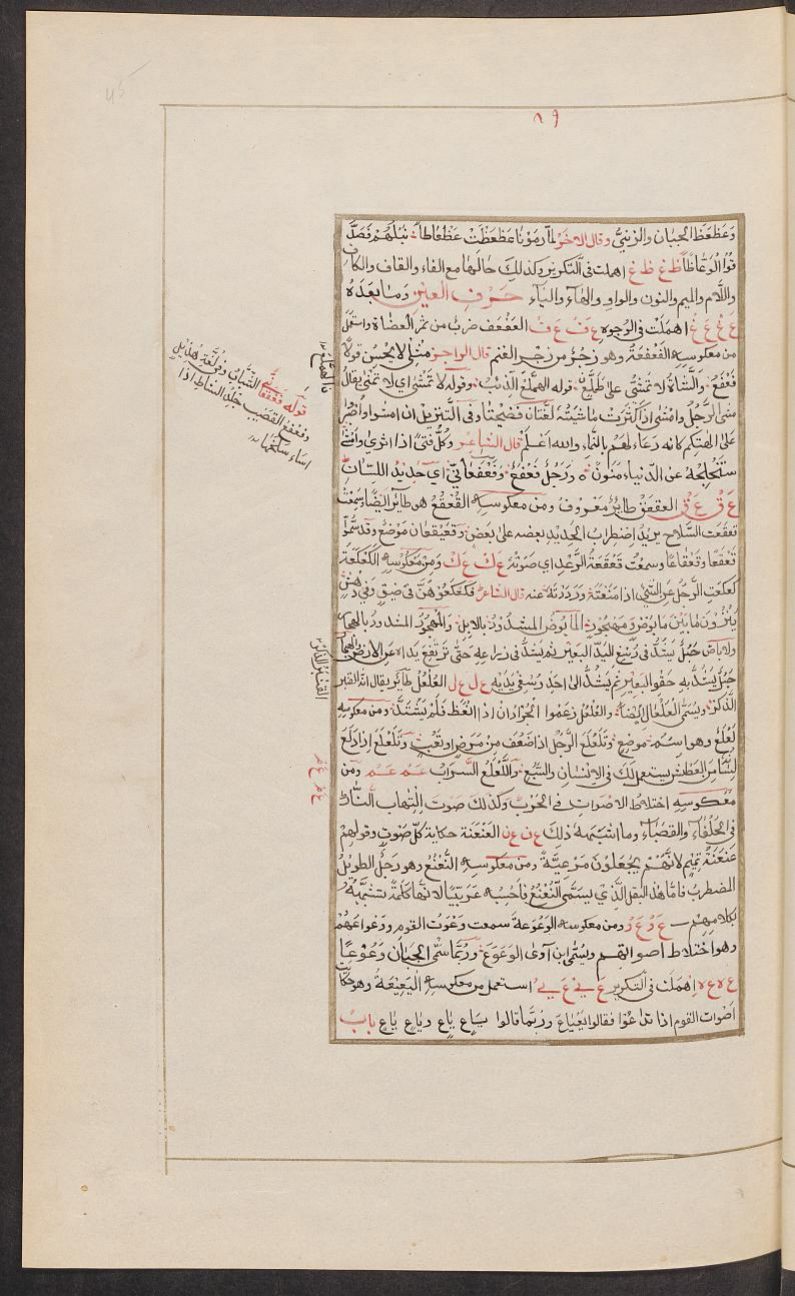 ٨٩
وَعَظْعَظَ الجبَان والزِنِيُّ وقال الاخَرُ لمَّا رَمَوْنا عَظْعَظَتْ عظْعاظاً نَبْلُهُمْ فصَدَّ
قُوا الوَعَّاظَا ظ غ ظ غ اهملت في التكرير وكذلك حالهما مع الفاء والقاف والكاف
واللّام والميم والنون والواو والهاء والياء حَرْف العين وما بعدَهُ
ع غ ع غ اهملت في الوجوه ع ف ع ف العَفْعَف ضربٌ من ثمر العضاة واستعمل
من معكوسه الفَعْفَعَةُ وهو زجْرٌ من زجر الغنم قال الراجز مثلي لا يُحسِن قولاً
فَعْفَع والشّاةُ لا تُمشّي على الهَمَلَّع قوله الهملّع الذئب وقوله لا تمشّي اي لا تنمى يقال
مشى الرّجلُ وامشى اذا كثرت ماشيتُهُ لغتان فصيحتان وفي التنزيل ان امشوا واصبروا
على الهتكم كانه دعاء لهم بالنّماء والله اعلم قال الشاعر وكُلُّ فتىً اذا اثرى وامشى
ستُخلِجُهُ عن الدّنيا مَنُونُ ورجُلٌ فَعْفَعٌ وفَعْفَعانيّ اي حديد اللسان
ع ق ع ق العقعق طائرٌ معروف ومن معكوسه القُعْقُعُ هو طائر ايضا سمعت
تقعقعت السّلاح يريد اضطراب الحديد بعضه على بعض وقُعَيْقعان موضع وقد سمّوا
قَعْقَعًا وقَعْقَاعًا وسمعت قَعْقَعَةَ الرَّعْد اي صَوْتَهُ ع ك ع ك ومن معكوسه الكَعْكَعَة
كعكعت الرّجُل عن الشئ اذا منعتَهُ ورددته عنه قال الشاعر فكعكعوهُنَّ في ضيقٍ وفي دَهَشٍ
يَنْزُونَ ما بين مأبوضٍ ومهجورِ المأبوض المشدود بالابل والمهجور المشدود بالهجار
والاباض حبل يشدّ في رسغ اليد البعير ثم يشدّ في ذراعه حتى ترتفع يداه عن الارض والهجار
حبلٌ يشدّ به حقو البعير ثم يُشدّ الى احد رسغي يديه ع ل ع ل العُلْعُل طائر يقال انّه القنبر
الذّكر ويُسمّى العَلْعَال ايضا والعُلْعُل زعموا الجُرْدان اذا انعظ فلم يشتدّ ومن معكوسه
لَعْلَع وهو اسم موضع وتلَعْلَعَ الرّجُل اذا ضعف من مرضٍ او تعبٍ وتلعلع اذا دلع
لسانه من العطش يستعمل ذلك في الانسان والسّبع واللّعْلَع السّراب ع م ع م ومن
معكوسه اختلاط الاصوات في الحرب وكذلك صوت التهاب النّار
في الحلفاء والقصباء وما اشبه ذلك ع ن ع ن العنعنة حكاية كلّ صوت وقولهم
عَنْعَنَةُ تميم لانّهم يجعلون من عينةً ومن معكوسه النُّعْنُع وهو رجل الطويل
المضطرب فامّا هذا البقل الذي يسمّى النُّعْنُع فاحسبه عربيّا لانها كلمة تشبّه
بكلامهم ع و ع و ومن معكوسه الوَعْوَعة سمعت وعوت القوم ووعواعهم
وهو اختلاط اصواتهم ويسمّى ابن آوى الوعوع وربّما سمّي الجبان وعوعًا
ع ه ع ه اهملت في التكرير ع ي ع ي استعمل من معكوسه اليَعْيَعَةُ وهو حكايت
اصوات القوم اذا تداعوا فقالوا يَعْيَاع وربّما قالوا ياع ياع وياع ياع باب
عن الهملّع
القنبر الذكر
ع م ع م
قوله فعفعي القصّاب وفي لغة هُذيل
وفعفع القصّب جلد الشاة اذا
اساء سلخها